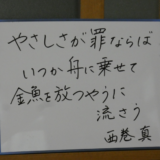 やさしさが罪ならば
いつか舟に乗せて
金魚を放つやうに
流さう
西巻真